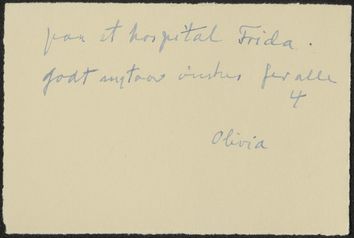 paa et hospital Frida.
godt nytaar ønskes for alle
4
Olivia